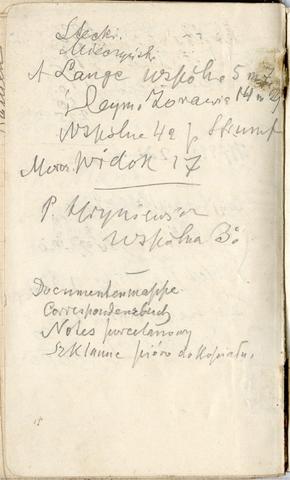 Stecki.
Mieczyński.
A Lange Wspólna 5 m 7
Reym. Żorawia 14 m
Wspólna 42 p Strumf
Moros. Widok 17
P. Hryniewicz
Wspólna 3
Documentenmappe
Correspondenzbuch
Notes porcelanowy
Szklanne pióro do Kopiału.
15